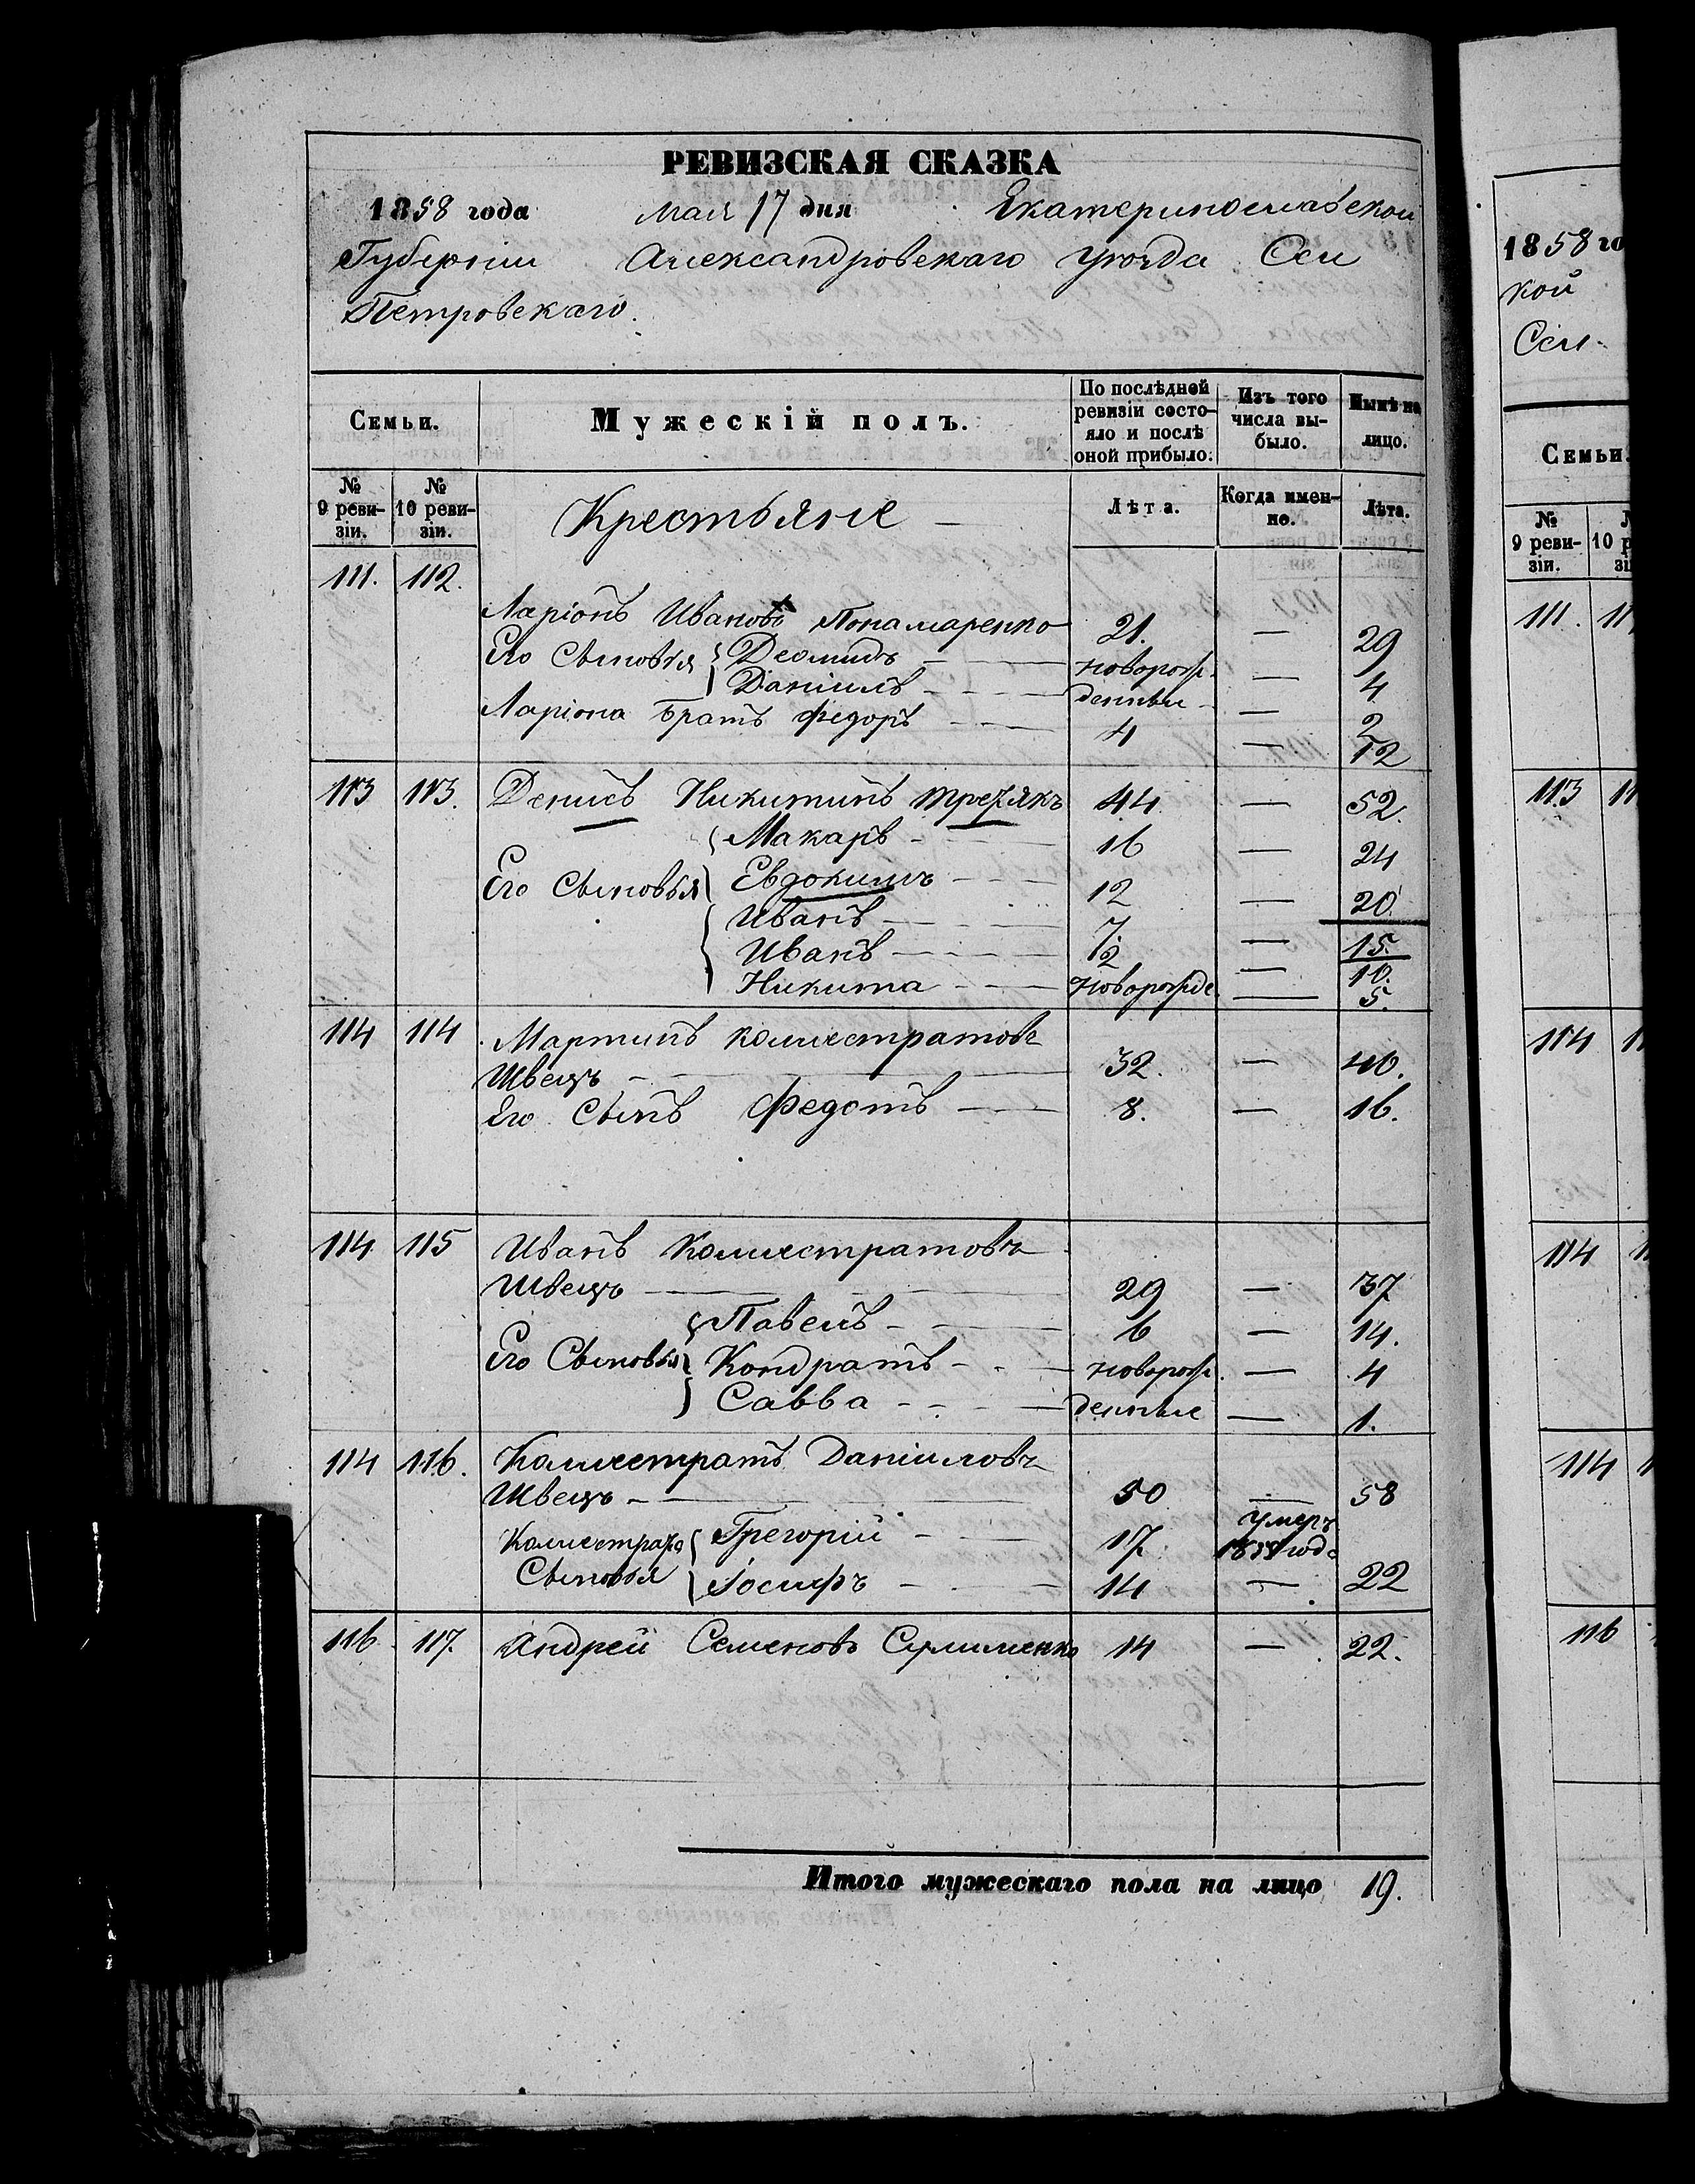 РЕВИЗСКАЯ СКАЗКА
1858 года Мая 17 дня Екатеринославской
Губерніи Александровскаго уезда Сел
Петровскаго.
Семьи. Мужескій полъ. По послѣдней ревизіи состо-яло и послѣ оной прибыло. Изъ того числа вы-было. Нынѣ на лицо.
№ 9 реви-зіи. № 10 реви-зіи. Крестьяне Лѣта. Когда имен-но. Лѣта.
111. 112.
Ларіонъ Ивановъ Понамаренко 21. — 29
Его Сыновья Деомидъ новорож- — 4
Даніилъ денные — 2
Ларіона Братъ Федоръ 4 — 12
113 113. Денисъ Никитинъ Третякъ 44 — 52.
Макаръ 16 — 24
Его Сыновья Евдокимъ 12 — 20
Иванъ 7 — 15.
Иванъ 2 — 10.
Никита новорожде — 5.
114 114 Мартинъ Коллестратовъ
Швецъ 32. — 40.
Его Сынъ Федотъ 8. — 16.
114 115 Иванъ Коллестратовъ
Швецъ 29 — 37
Павелъ 6 — 14.
Его Сыновья Кондратъ новорож. — 4
Савва денные — 1.
114 116. Коллестратъ Даніиловъ
Швецъ 50 — 58
Коллестрата Грегорій 17. умеръ 1858 года
Сыновья Іосифъ 14 — 22
116 117. Андрей Семеновъ 14 — 22.
Итого мужескаго пола на лицо 19.
1858 го
кой
Сел
Семьи.
№ 9 реви-зіи. 10 р
111. 11
113 11
114 1
114 1
114 1
116